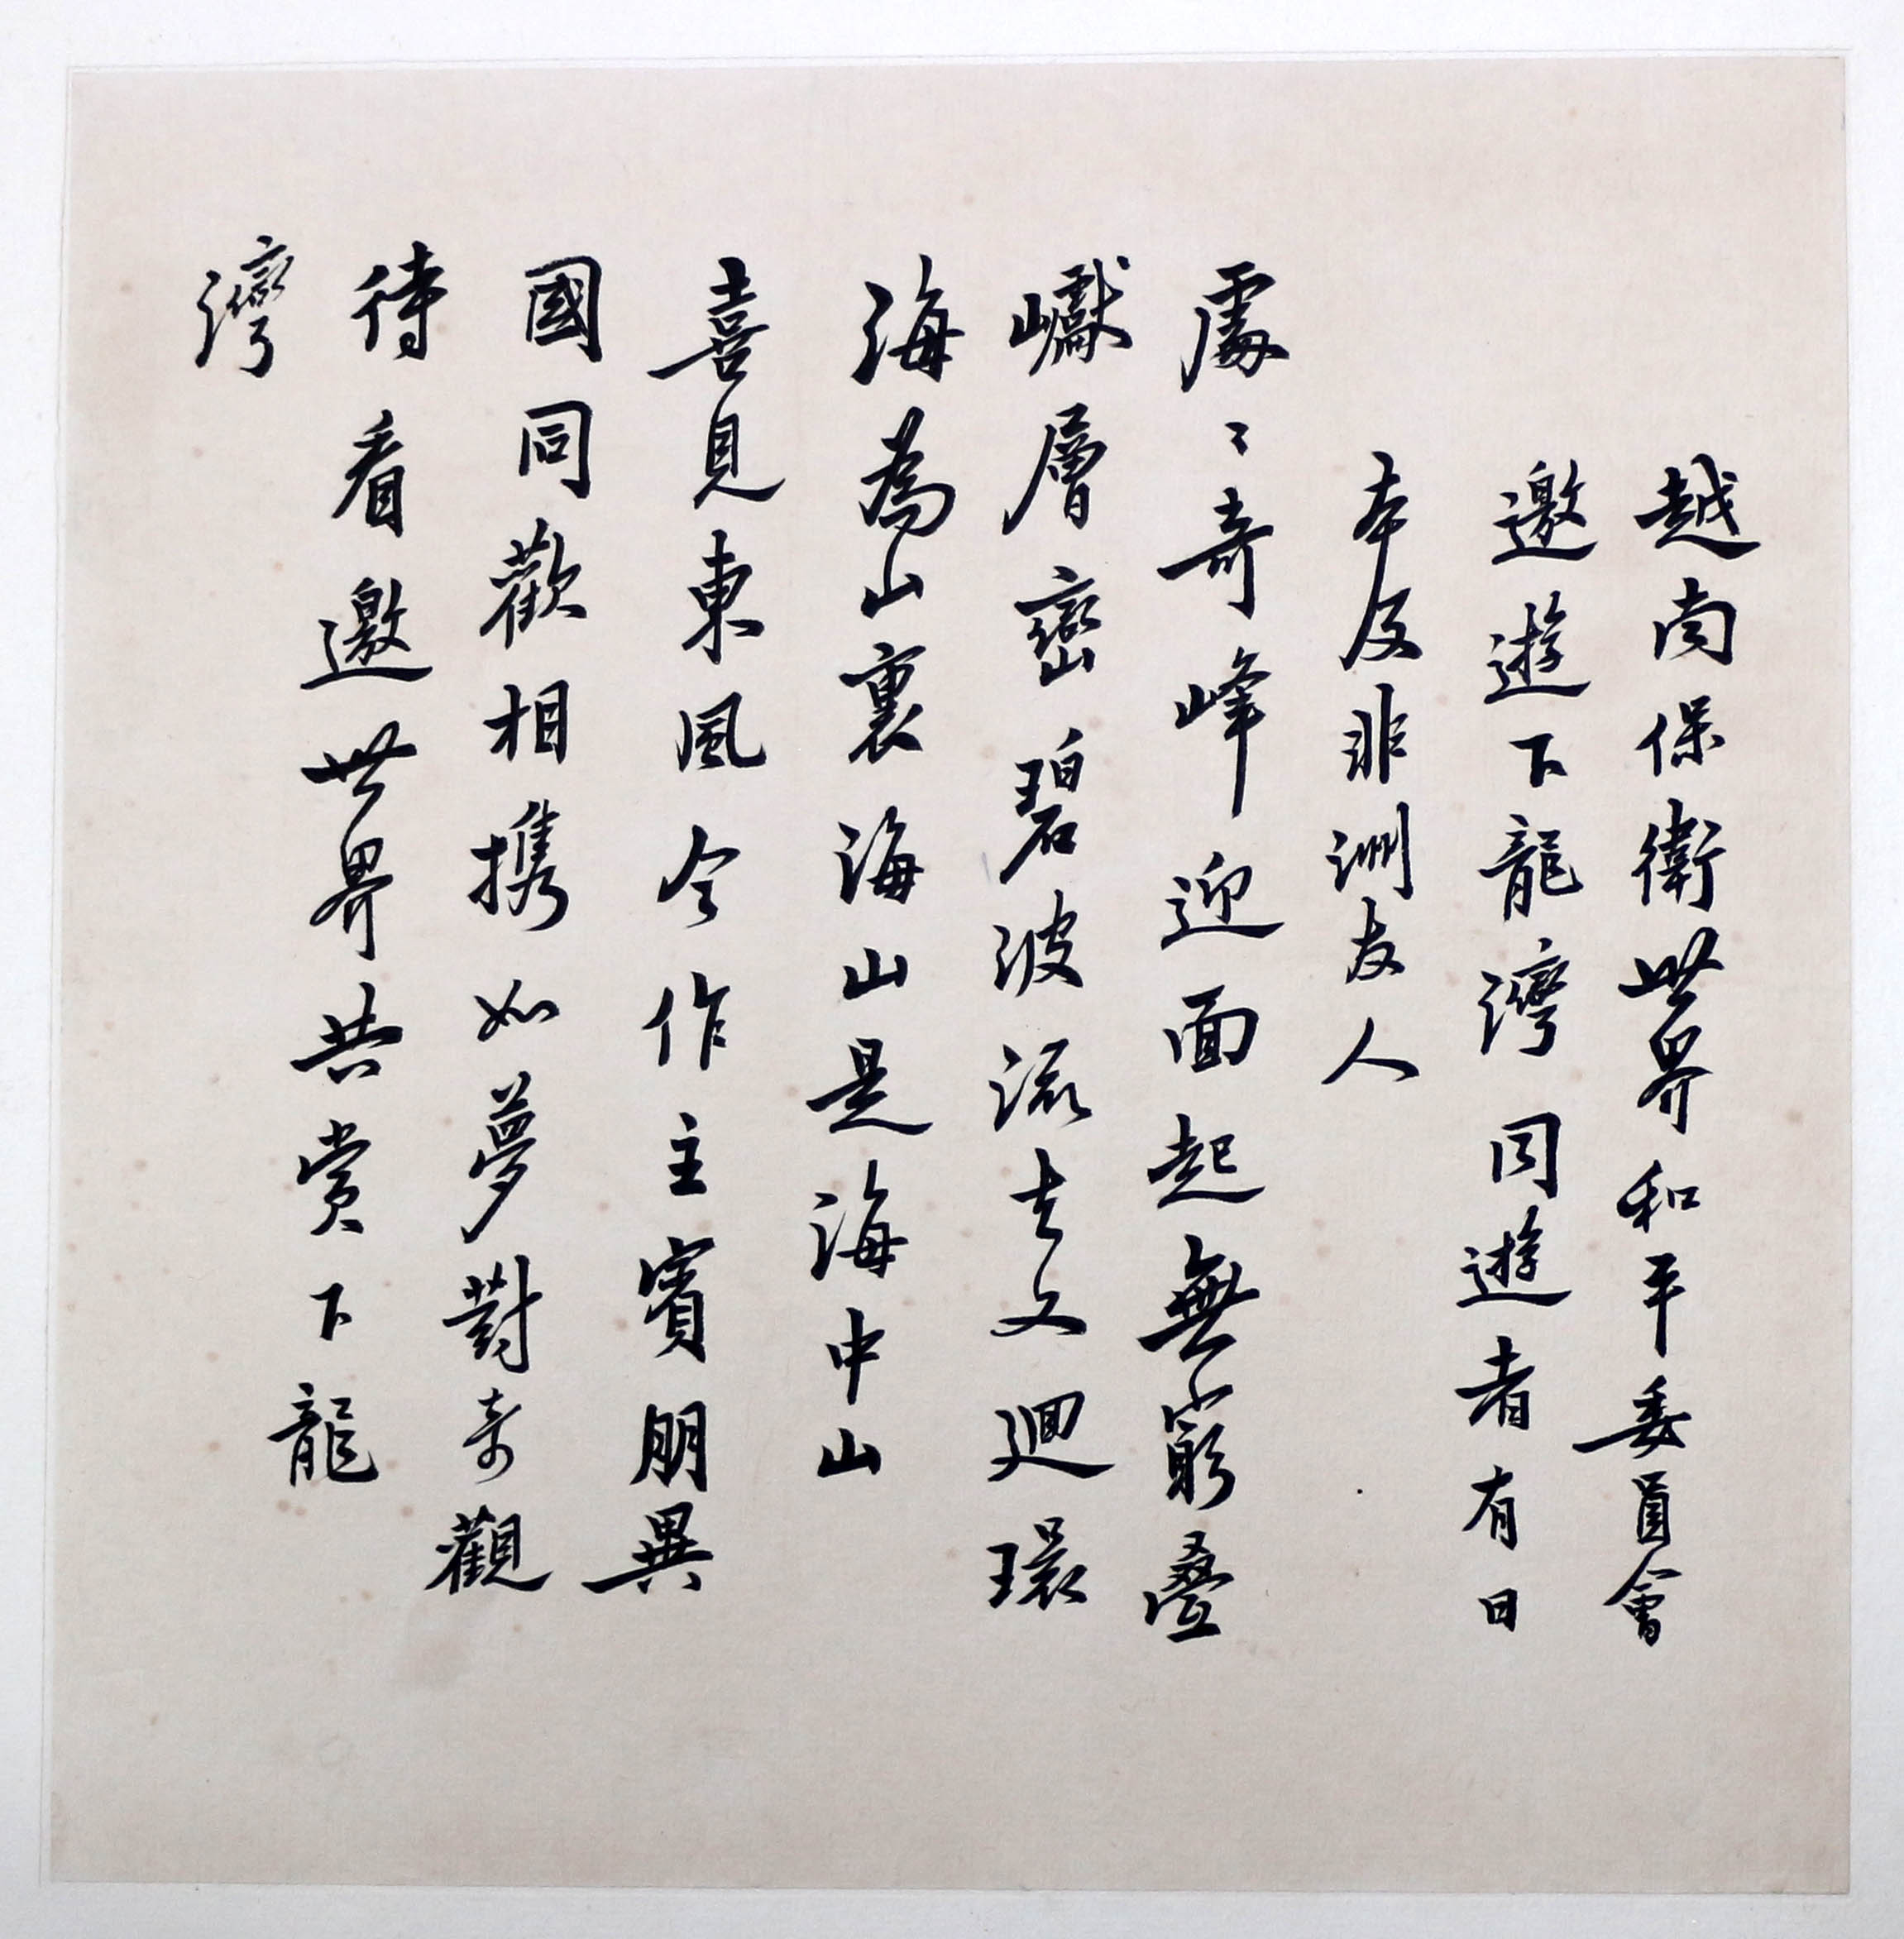 越南保衛世界和平委員會
邀遊下龍灣同遊者有日
本及非洲友人
處〻奇峰迎面起無窮疊
巘層巒碧波流去又迴環
海為山裏海山是海中山
喜見東風今作主賓朋異
國同歡相携如夢對奇觀
待看邀世界共賞下龍
灣